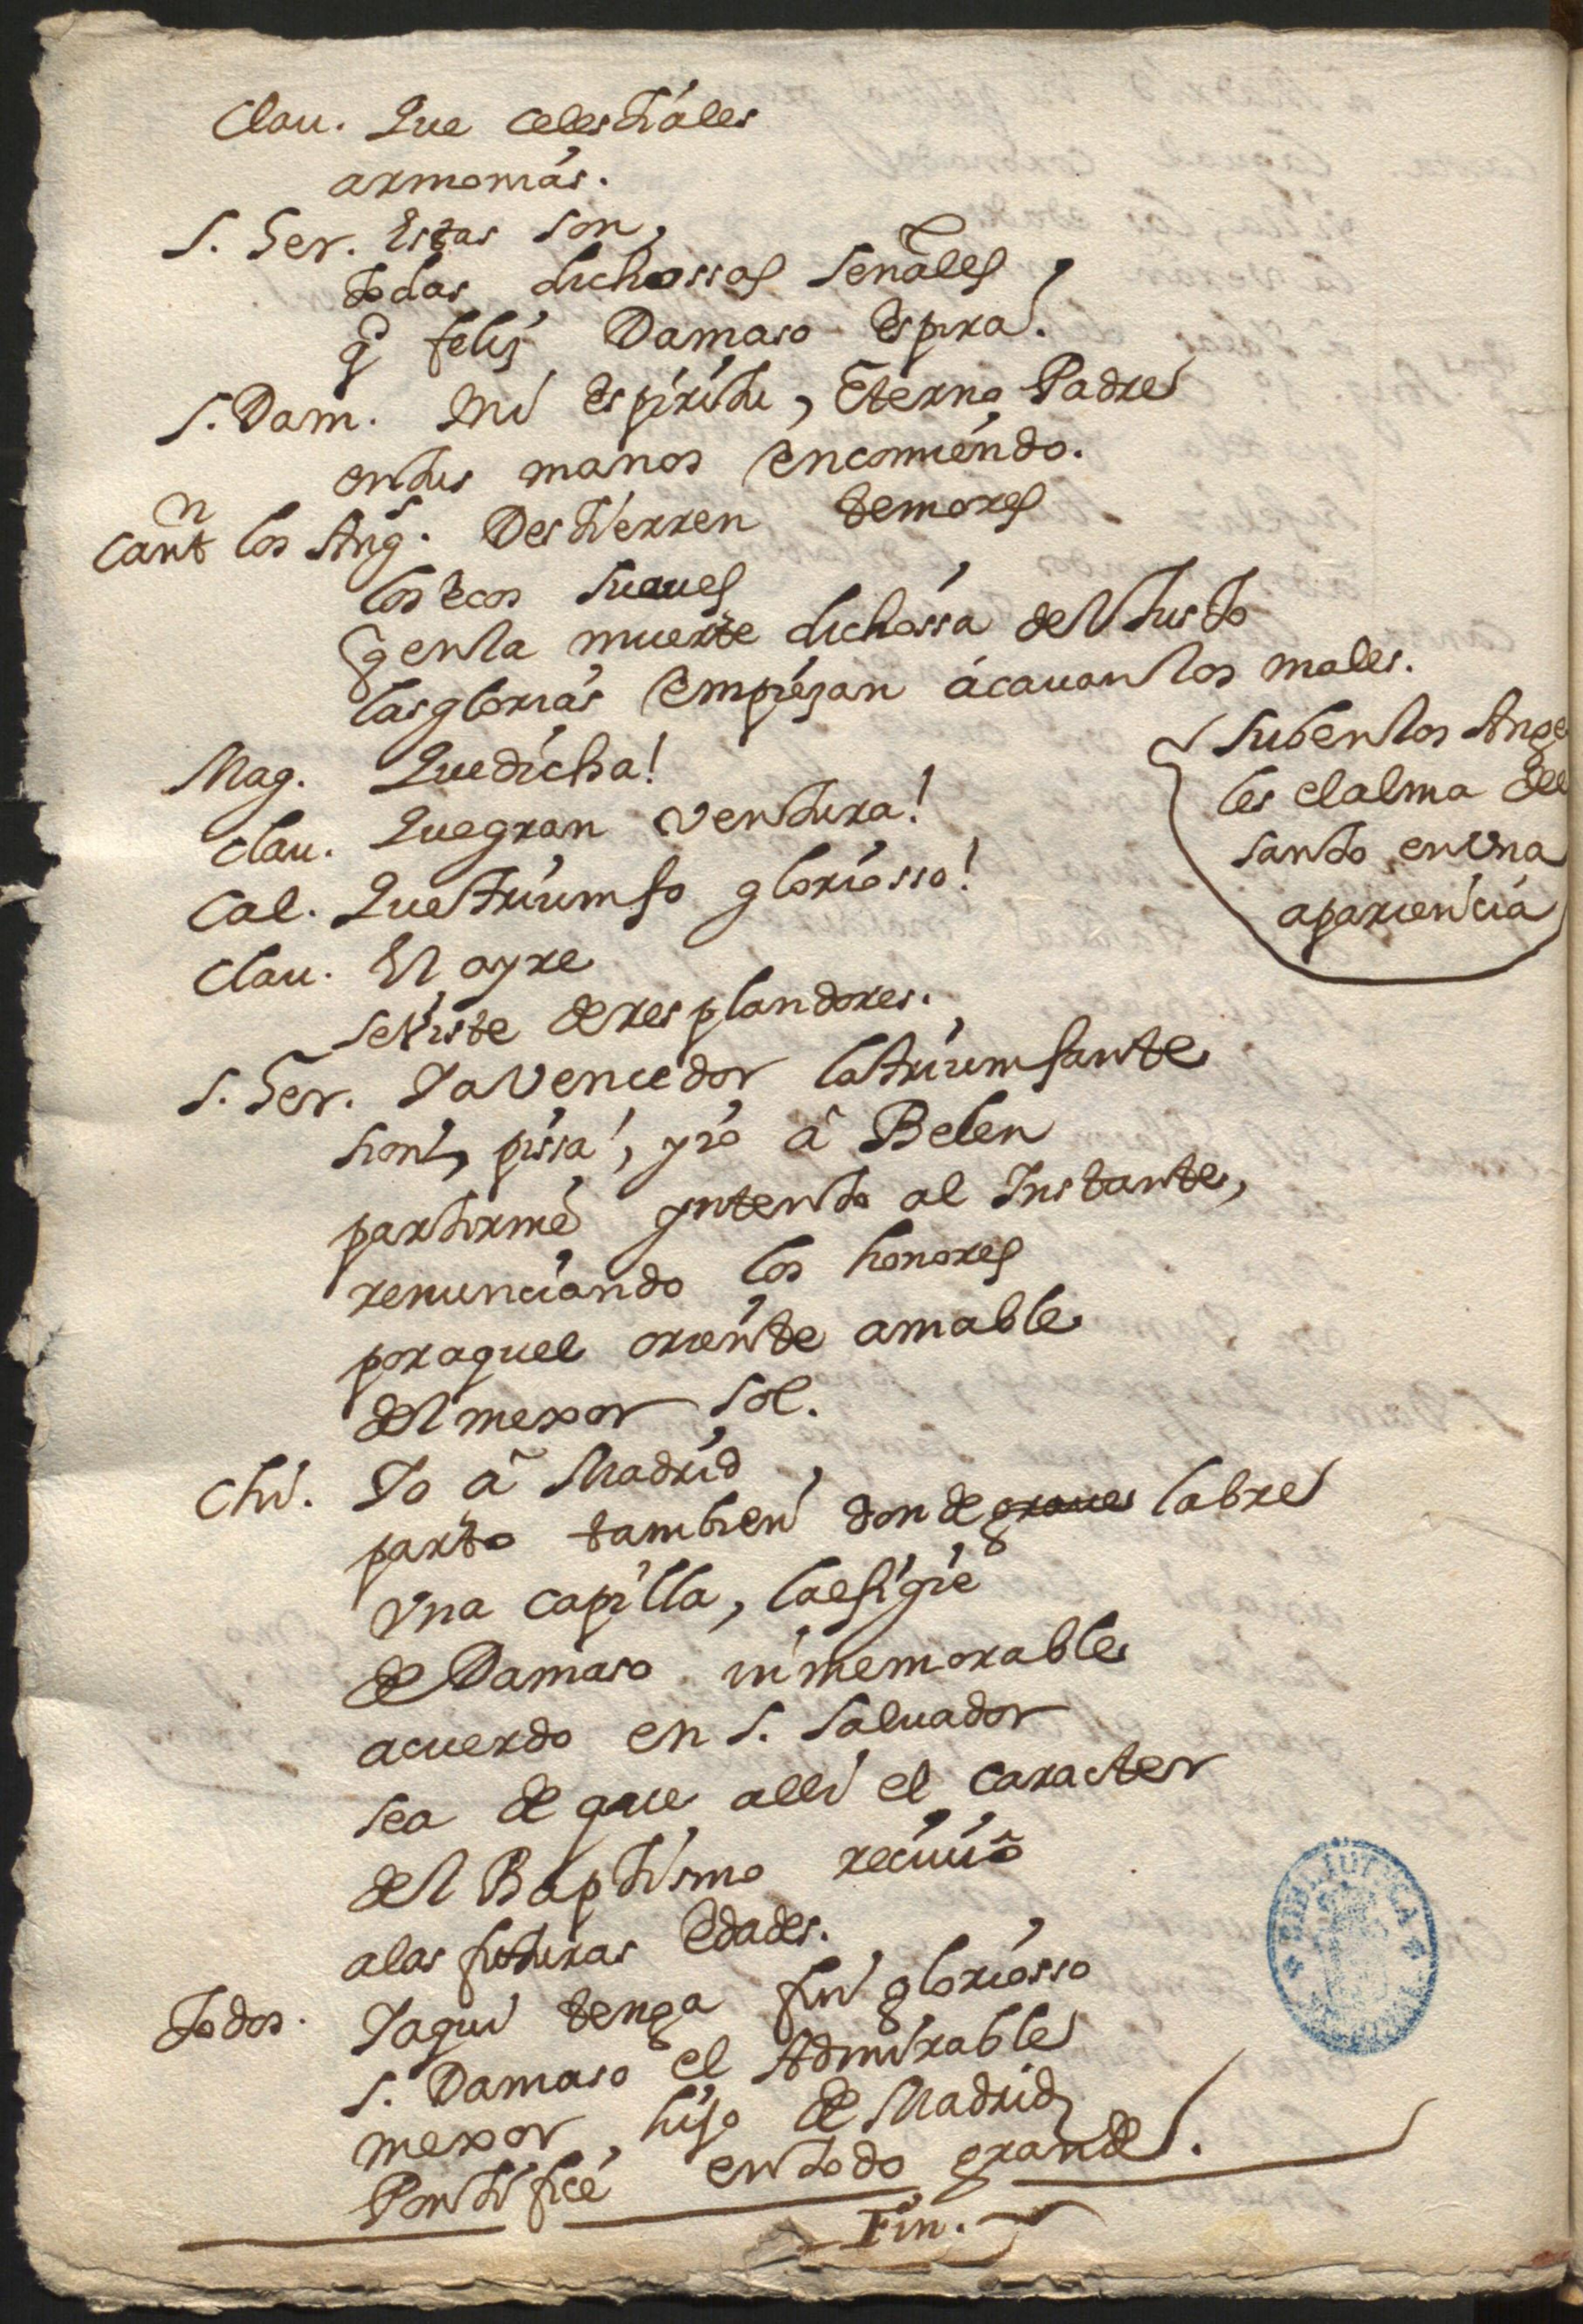 Clau. Que celestiales
armonias.
S. Ger. Estas son,
todas dichossas señales
q̃ felis Damaso espira.
S. Dam. Mi espiritu, Eterno Padre
entus manos encomiendo.
Cantn los Angs. Destierren temores
los ecos suaues
q̃ enla muerte dichossa del Justo
las glorias empiezan ácauan los males.
Mag. Que dicha!
Suben los Ange
les el alma del
santo en vna
apariencia
Clau. Que gran ventura!
Cal. Que triumfo gloriosso!
Clau. El ayre
se viste de resplandores.
S. Ger. Ya vencedor la triumfante
Sion, pissa, y io â Belen
partirme yntento al Instante,
renunciando los honores
por aquel oriente amable
del mexor Sol.
Chi. Yo â Madrid
parto tambien donde graues labre
vna capilla, la efigie
de Damaso inmemorable
acuerdo en S. Saluador
sea de que alli el caracter
del Baptismo reciuio
alas futuras edades.
Todos. Y aqui tenga fin gloriosso
S. Damaso el Admirable
mexor hijo de Madrid
Pontifice en todo grande.
Fin.
BIBLIOTECA